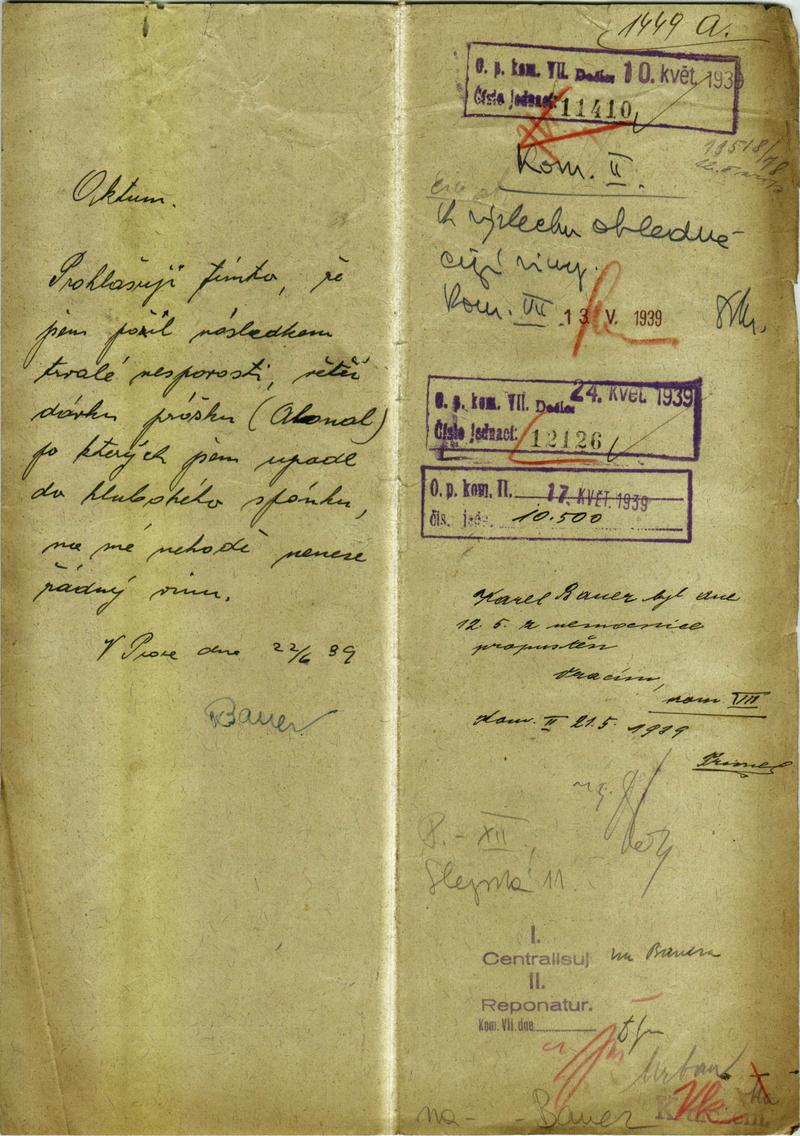 Aktum.
Prohlašuji tímto, že
jsem požil následkem
trvalé nesparosti, větší
dávku prášku (Alonal)
po kterých jsem upadl
do hlubokého spánku,
na mé nehodě nenese
žádný vinu.
V Praze dne 22/6 39
Bauer
1449 A.
O. p. kom. VII. Došlo: 10. květ. 1939
Číslo jednací: 11410
Kom. II.
k výslechu ohledně
cizí viny.
Kom. VII 13. V. 1939
O. p. kom. VII. Došlo: 24. květ. 1939
Číslo jednací: 12126
O. p. kom. II. 17. KVĚT. 1939
čís. jedn. 10.500
Karel Bauer byl dne
12. 5. z nemocnice
propuštěn
Vracím,
kom VII
Kom. II 21.5. 1939
P. - XII,
Slezská 11.
I.
Centralisuj na Bauera
II.
Reponatur.
Kom. VII. dne
Urban
na - Bauer